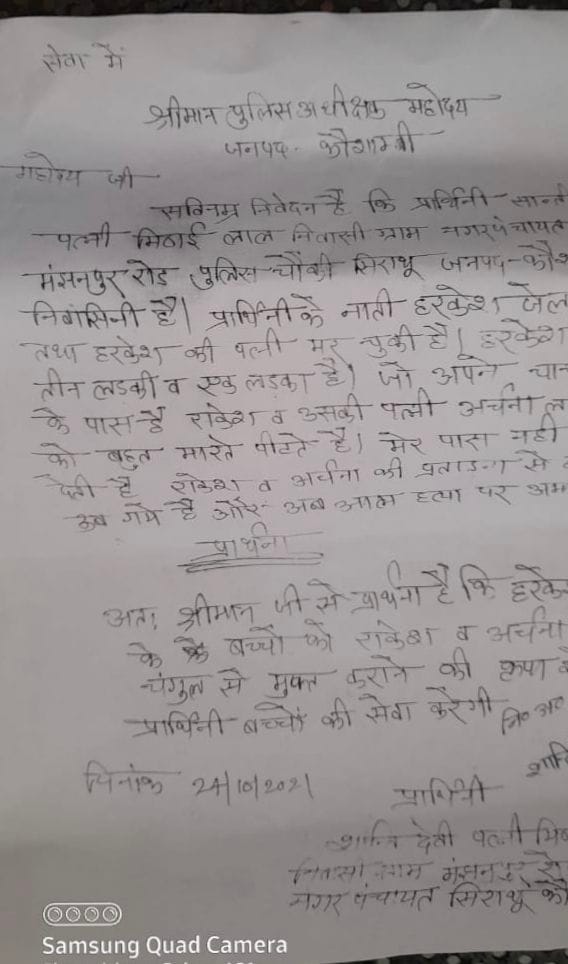 सेवा में
श्रीमान पुलिस अधीक्षक महोदय
जनपद - कौशाम्बी
महोदय जी
सविनम्र निवेदन है कि प्रार्थिनी
पत्नी मिठाई लाल निवासी ग्राम नगर पंचायत
मंझनपुर रोड पुलिस चौकी सिराथू जनपद -
निवासिनी है। प्रार्थिनी के नाती हरकेश जेल
तथा हरकेश की पत्नी मर चुकी है। हरकेश
तीन लडकी व एक लडका है। जो अपने
के पास है राकेश व उसकी पत्नी अर्चना
को बहुत मारते पीटते है। मेर पास नही
देती है राकेश व अर्चना की प्रताडना से
उब गये है और अब आत्म हत्या पर
प्रार्थना
अतः श्रीमान जी से प्रार्थना है कि
के बच्चों को राकेश व अर्चना
चंगुल से मुक्त कराने की कृपा
प्रार्थिनी बच्चों की सेवा करेगी
दिनांक 24/10/2021
प्रार्थिनी
शान्ति देवी पत्नी
निवासी ग्राम मंझनपुर
नगर पंचायत सिराथू
Samsung Quad Camera